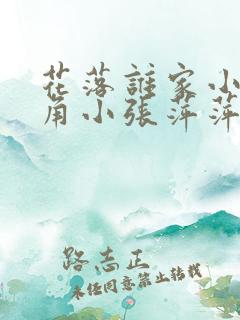 花落誰家小
角小張萍萍
路志正
未经同意禁止转载